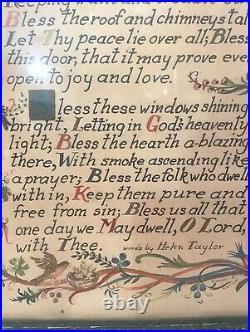 Keeping
Bless the roof and chimneys ta
Let Thy peace lie over all; Bless
this door, that it may prove eve
open to joy and love.
Bless these windows shining
bright, Letting in God's heavenly
light; Bless the hearth a-blazing
there, With smoke ascending like
a prayer; Bless the folk who dwell
with in, Keep them pure and
free from sin; Bless us all that
one day we May dwell, O Lord,
with Thee. words by Helen Taylor